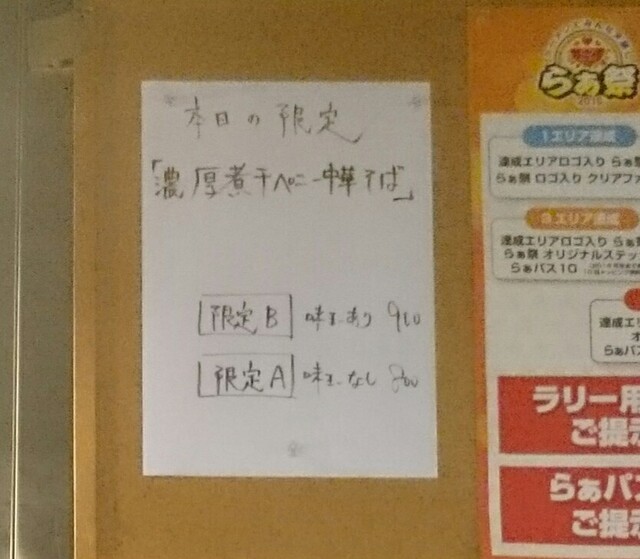 本日の限定
「濃厚煮干ペニー中華そば」
限定B 味玉あり 900
限定A 味玉なし 800
らぁ祭
2016
1エリア達成
達成エリアロゴ入り らぁ祭
らぁ祭 ロゴ入り クリアファ
達成エリアロゴ入り らぁ
らぁ祭 オリジナルステッ
らぁパス10
達成エ
オ
らぁパ
ラリー用
ご提示
らぁパス
ご提示